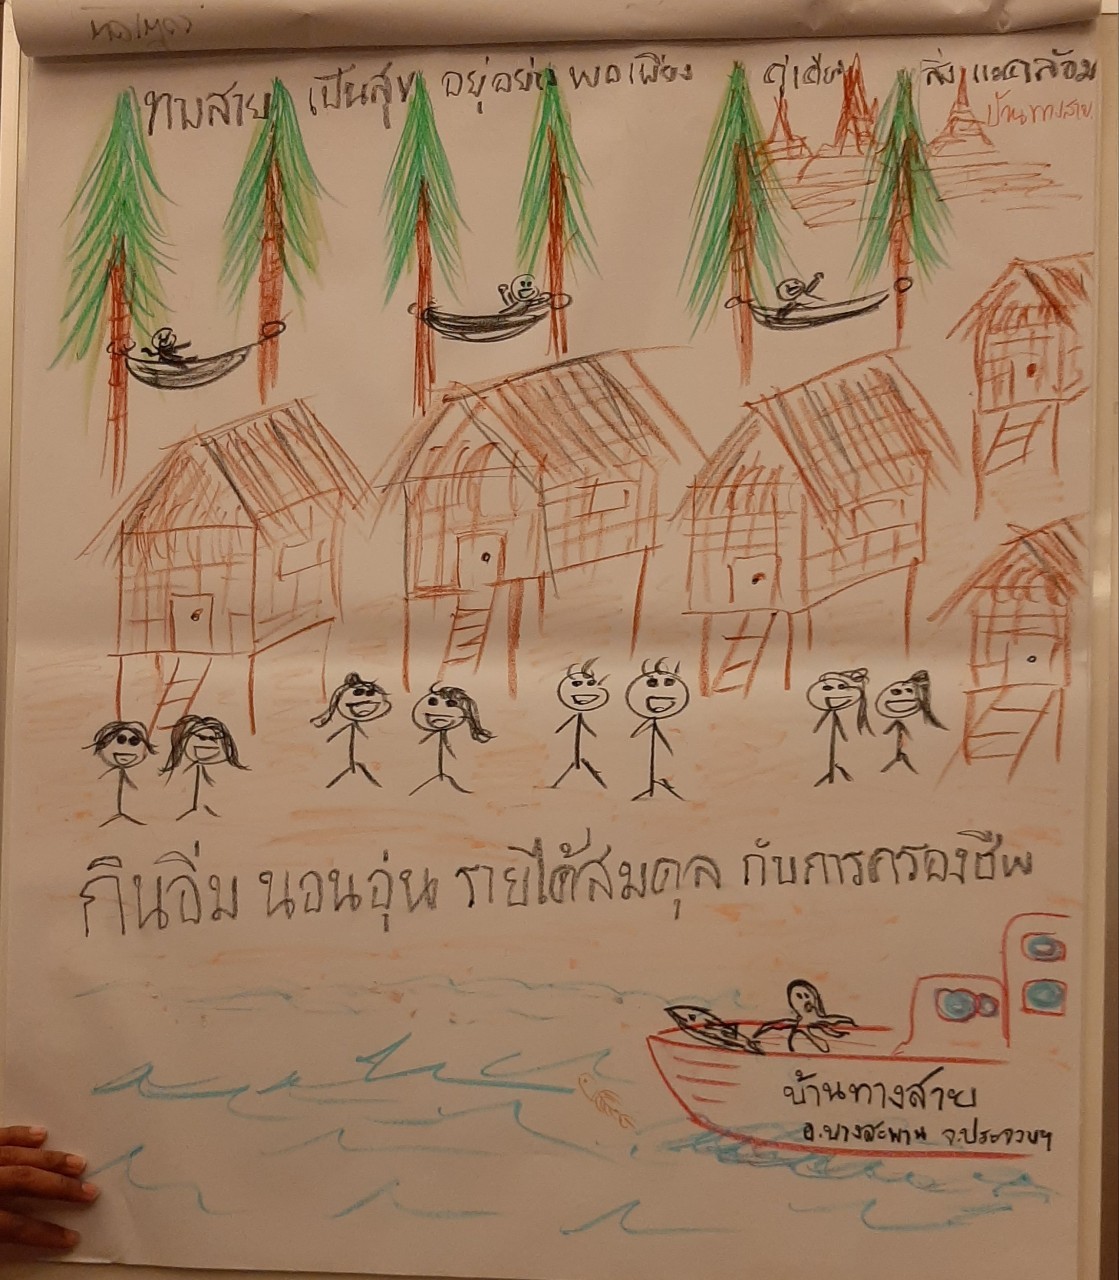 ทางสาย เป็นสุข อยู่อย่างพอเพียง คู่เคียง สิ่งแวดล้อม
บ้านทางสาย
กินอิ่ม นอนอุ่น รายได้สมดุล กับการครองชีพ
บ้านทางสาย
อ.บางสะพาน จ.ประจวบฯ